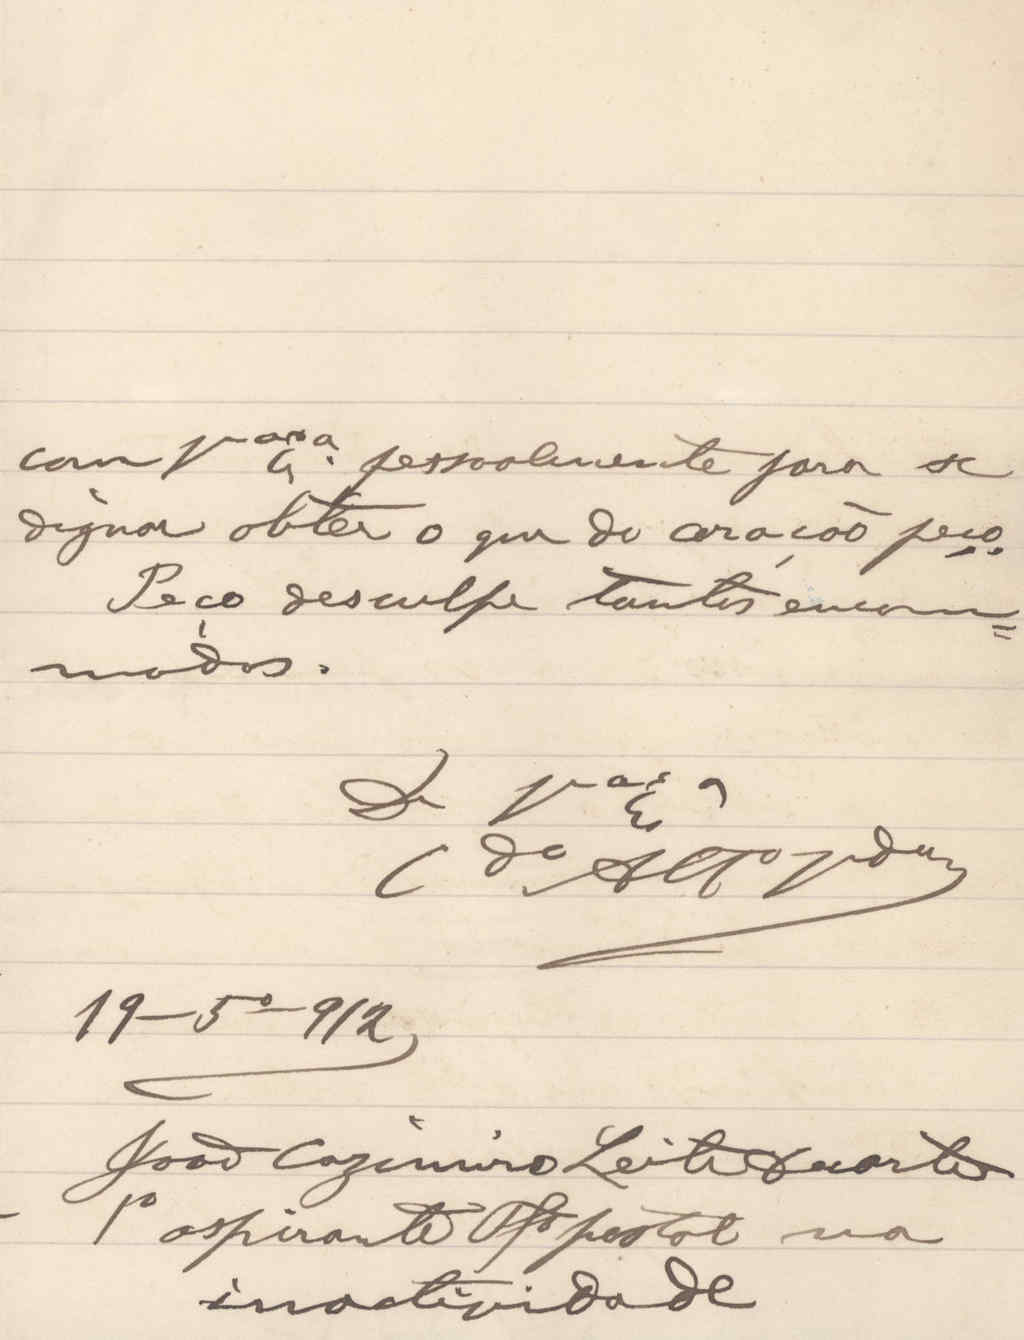 com V. Ex.ª pessoalmente para se
dignar obter o que do coração peço.
Peço desculpe tantos encom=
modos.
De V. Ex.ª
C.do Att.º V.dor
19-5º-912
João Cazimiro Leite Duarte
1º aspirante postal na
inactividade